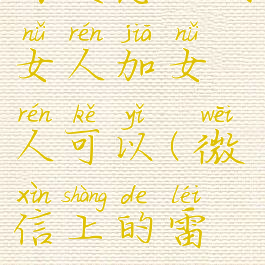 nǚ rén jiā nǚ
女人加女
rén kě yǐ wēi
人可以(微
xìn shàng de léi
信上的雷